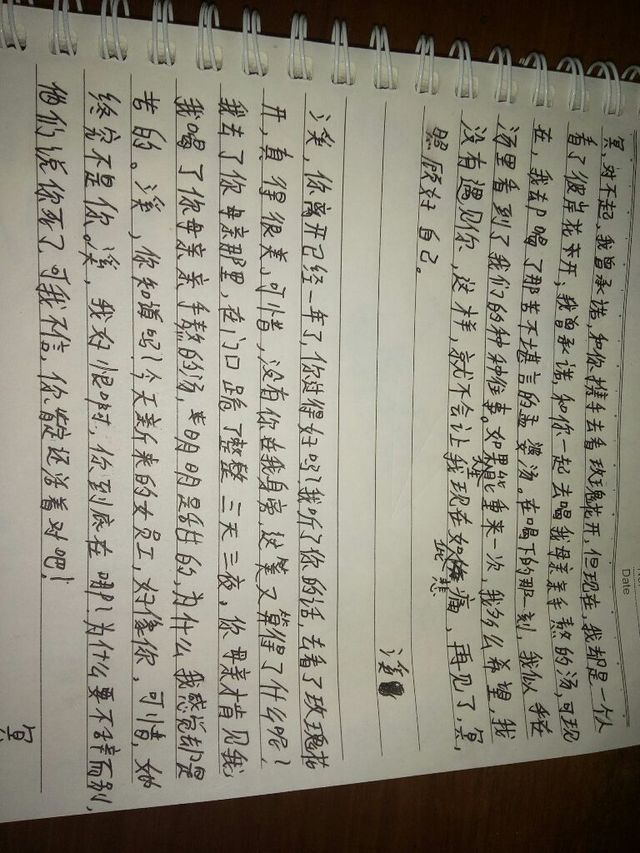 Date
冥，对不起，我曾承诺，和你携手去看玫瑰花开，但现在，我却是一个人
看了彼岸花齐开，我曾承诺，和你一起去喝我母亲亲手熬的汤，可现
在，我却喝了那苦不堪言的孟婆汤。在喝下的那一刻，我似乎在
汤里看到了我们的种种往事。如果能重来一次，我多么希望，我
没有遇见你，这样，就不会让我现在如此悲痛，再见了，冥，
照顾好自己。
溪
溪，你离开已经一年了，你过得好吗？我听了你的话，去看了玫瑰花
开，真得很美，可惜，没有你在我身旁，这美又算得了什么呢？
我去了你母亲那里，在门口跪了整整三天三夜，你母亲才肯见我
我喝了你母亲亲手熬的汤，明明是甜的，为什么我感觉却是
苦的。溪，你知道吗？今天新来的女员工，好像你，可惜，她
终究不是你，溪，我好恨呀，你到底在哪？为什么要不辞而别，
他们说你死了，可我不信，你肯定还活着对吧？
冥